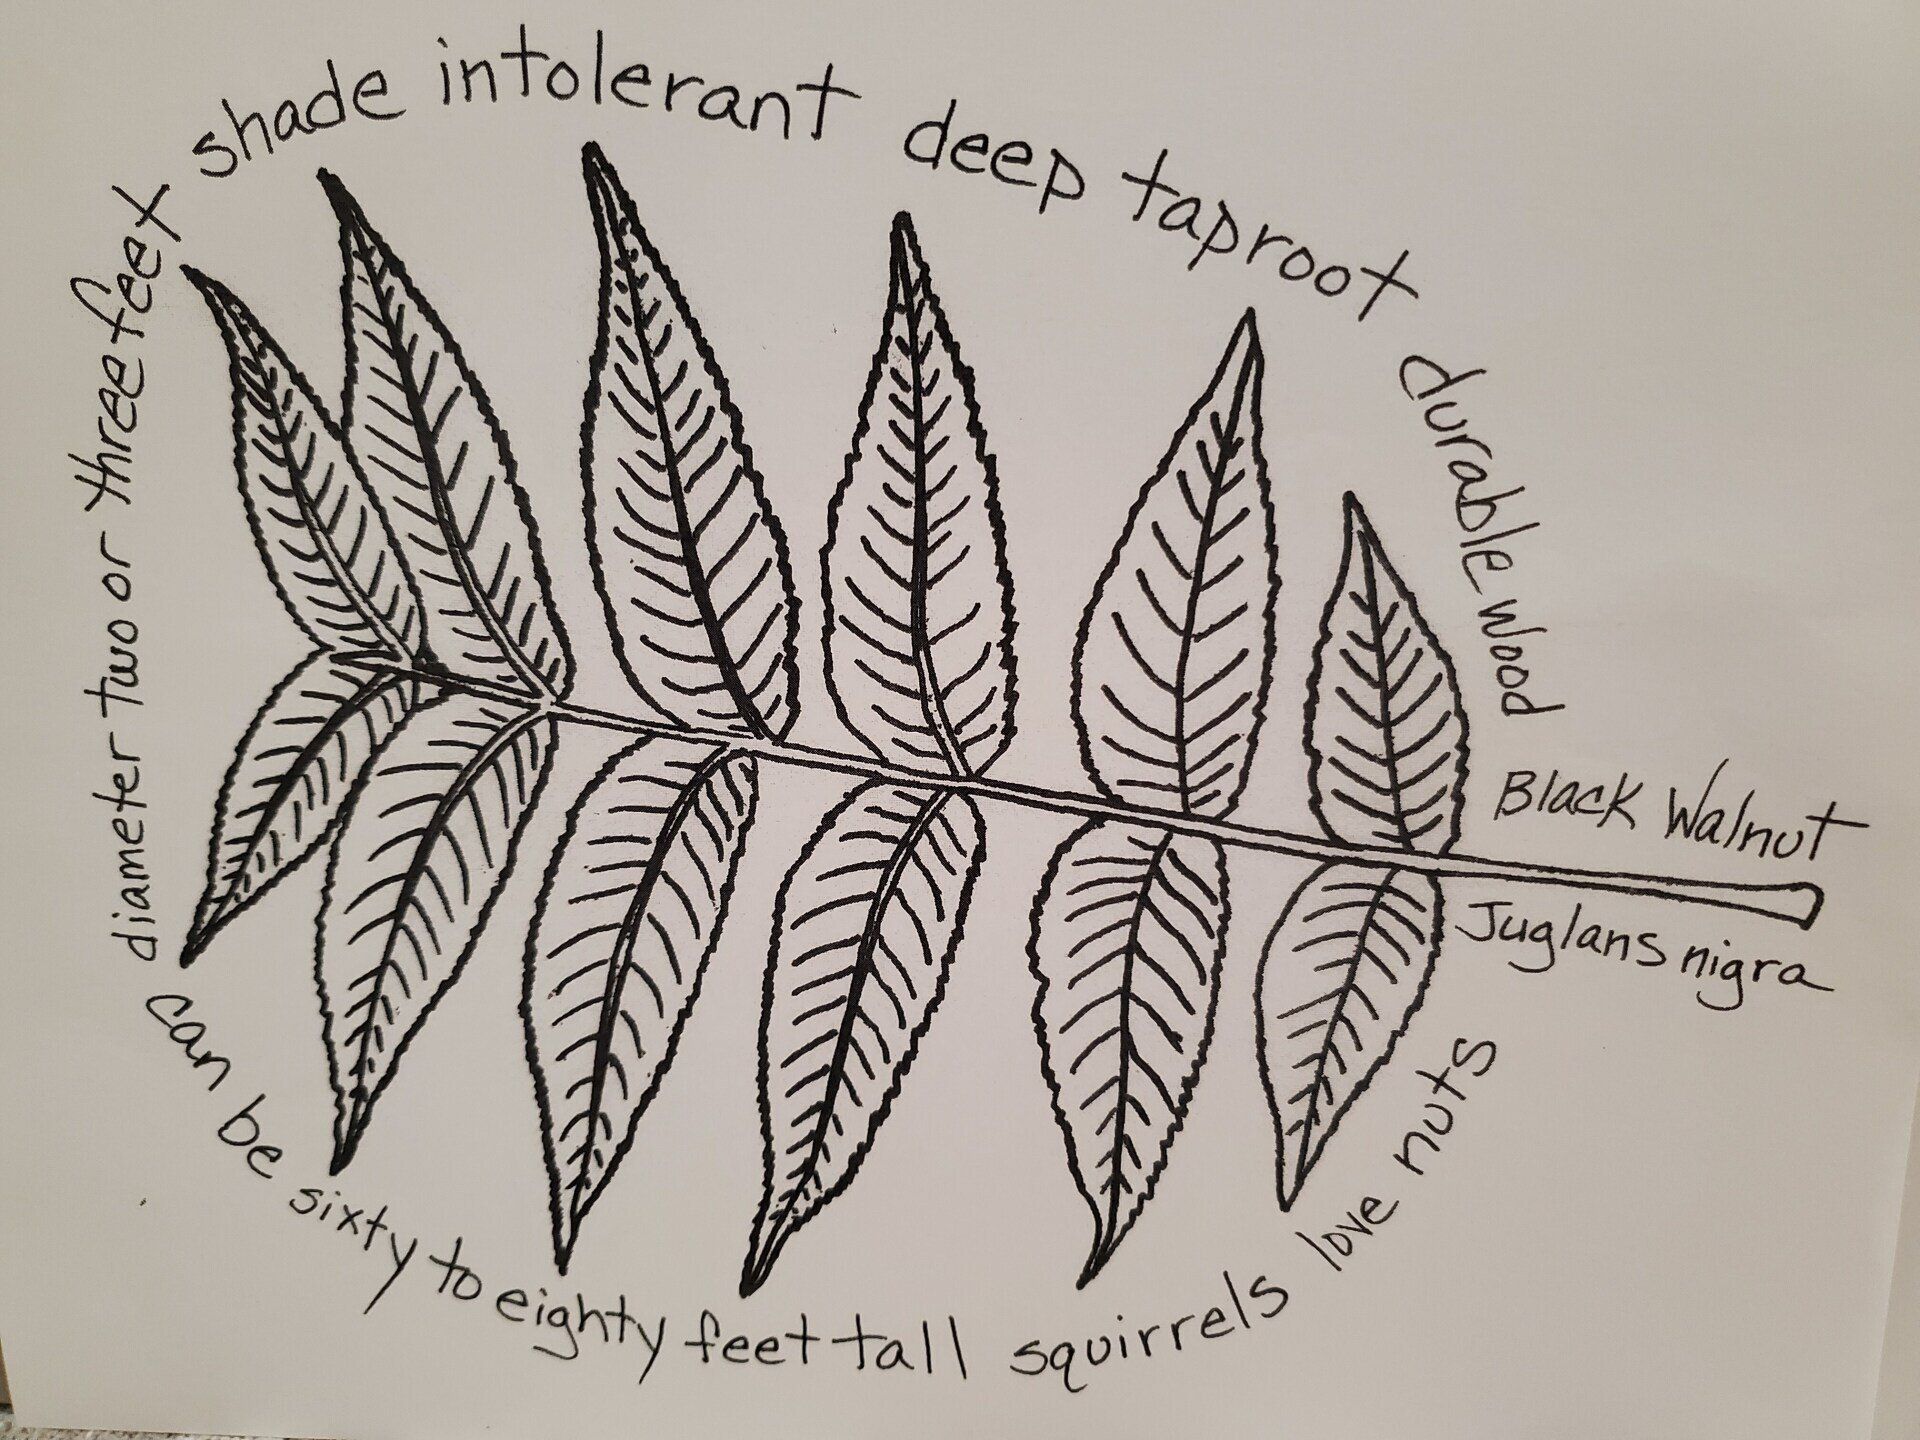 shade intolerant
deep taproot
durable wood
Black Walnut
Juglans nigra
diameter two or three feet
can be sixty to eighty feet tall
squirrels love nuts